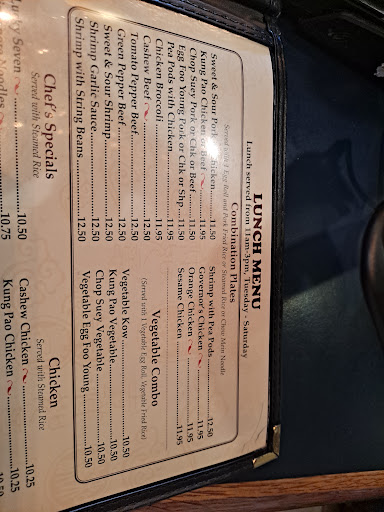 LUNCH MENU
Lunch served from 11am-3pm, Tuesday - Saturday
Combination Plates
Served with 1 Egg Roll and Pork Fried Rice or Steamed Rice or Chow Mein Noodle
Sweet & Sour Pork Chicken 11.50
Kung Pao Chicken or Beef 11.95
Chop Suey Pork or Chk or Beef 11.50
Egg Foo Young Pork or Chk or Shp 11.50
Pea Pods with Chicken 11.95
Chicken Broccoli 11.95
Cashew Beef 12.50
Tomato Pepper Beef 12.50
Green Pepper Beef 12.50
Sweet & Sour Shrimp 12.50
Shrimp Garlic Sauce 12.50
Shrimp with String Beans 12.50
Shrimp with Pea Pods 12.50
Governor's Chicken 11.95
Orange Chicken 11.95
Sesame Chicken 11.95
Vegetable Combo
(Served with 1 Vegetable Egg Roll, Vegetable Fried Rice)
Vegetable Kow 10.50
Kung Pao Vegetable 10.50
Chop Suey Vegetable 10.50
Vegetable Egg Foo Young 10.50
Chef's Specials
Served with Steamed Rice
Seven 10.50
Noodles 10.75
Chicken
Served with Steamed Rice
Cashew Chicken 10.25
Kung Pao Chicken 10.25
10.50